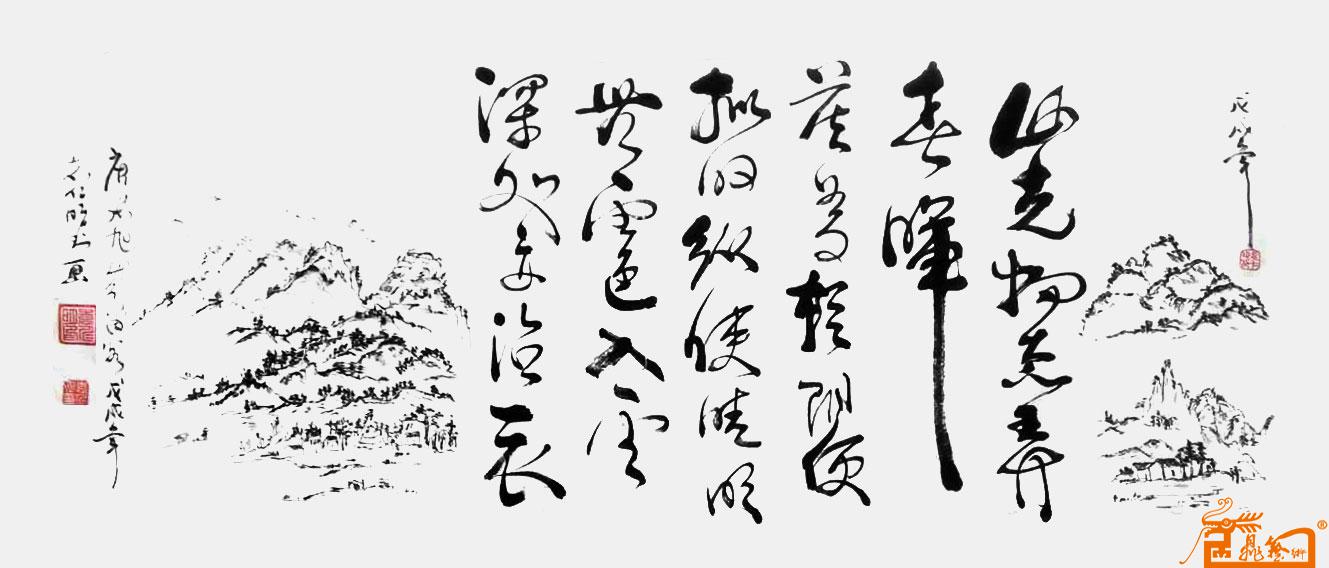 戊戌年
山光物态弄
春暉
莫为轻阴便
拟归纵使晴明
無雨色入云
深处亦沾衣
唐张旭山中留客戊戌年